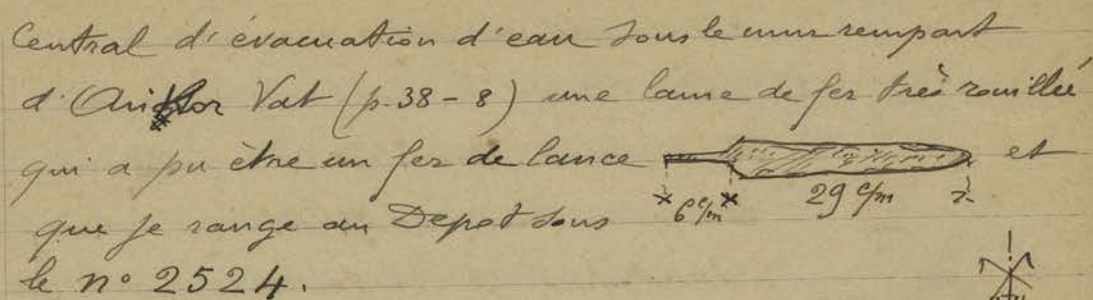 Central d'évacuation d'eau sous le mur rempart
d'Angkor Vat (p. 38-8) une lame de fer très rouillée
qui a pu être un fer de lance et
6 c/m 29 c/m
que je range au Depot sous
le n° 2524.